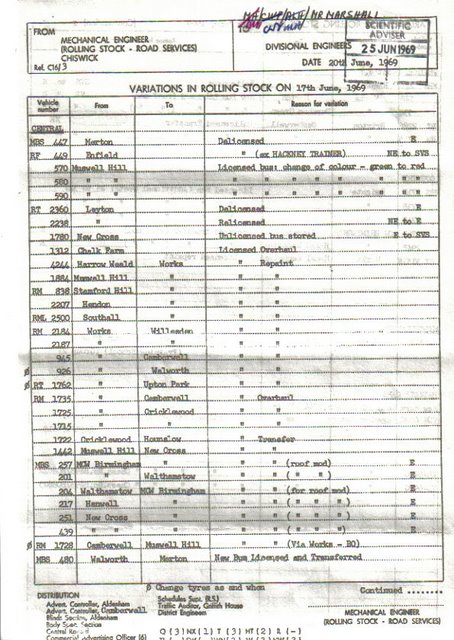 MA/CWP/DLTE/MR MARSHALL
FROM
MECHANICAL ENGINEER
(ROLLING STOCK - ROAD SERVICES)
CHISWICK
Ref. C16/3
TO
DIVISIONAL ENGINEERS
SCIENTIFIC
ADVISER
25 JUN 1969
DATE 20th June, 1969
VARIATIONS IN ROLLING STOCK ON 17th June, 1969
Vehicle number From To Reason for variation
CENTRAL
MBS 447 Merton Delicensed E
RF 449 Enfield " (ex HACKNEY TRAINER) NE to SVS
570 Muswell Hill Licensed bus: change of colour - green to red
580 " " " " " " " " " "
590 " " " " " " " " " "
RT 2360 Leyton Delicensed E
2238 " Relicensed NE to E
1780 New Cross Unlicensed bus stored E to SVS
1312 Chalk Farm Licensed Overhaul
4244 Harrow Weald Works " Repaint
1884 Muswell Hill " " "
RM 838 Stamford Hill " " "
2207 Hendon " " "
RML 2500 Southall " " "
RM 2184 Works Willesden " "
2187 " " " "
945 " Camberwell " "
ø 926 " Walworth " "
ø RT 1762 " Upton Park " "
RM 1735 " Camberwell " Overhaul
1725 " Cricklewood " "
1715 " " " "
1722 Cricklewood Hounslow " Transfer
1442 Muswell Hill New Cross " "
MBS 257 MCW Birmingham " " (roof mod) E
201 " Walthamstow " " ( " " ) E
204 Walthamstow MCW Birmingham " " (for roof mod) E
217 Hanwell " " " ( " " " ) E
251 New Cross " " " ( " " " ) E
439 " " " " ( " " " ) E
ø RM 1728 Camberwell Muswell Hill " " (Via Works - BO)
MBS 480 Walworth Merton New Bus Licensed and Transferred
ø Change tyres as and when
Continued ........
DISTRIBUTION
Advert. Controller, Aldenham
Advert. Controller, Camberwell
Blinds Section, Aldenham
Body Spec. Section
Central Record
Commercial Advertising Officer (6)
Schedules Supt. (R.S.)
Traffic Auditor, Griffith House
District Engineers
MECHANICAL ENGINEER
(ROLLING STOCK - ROAD SERVICES)
Q (3) NX(1) T (3) HT(2) R (-)